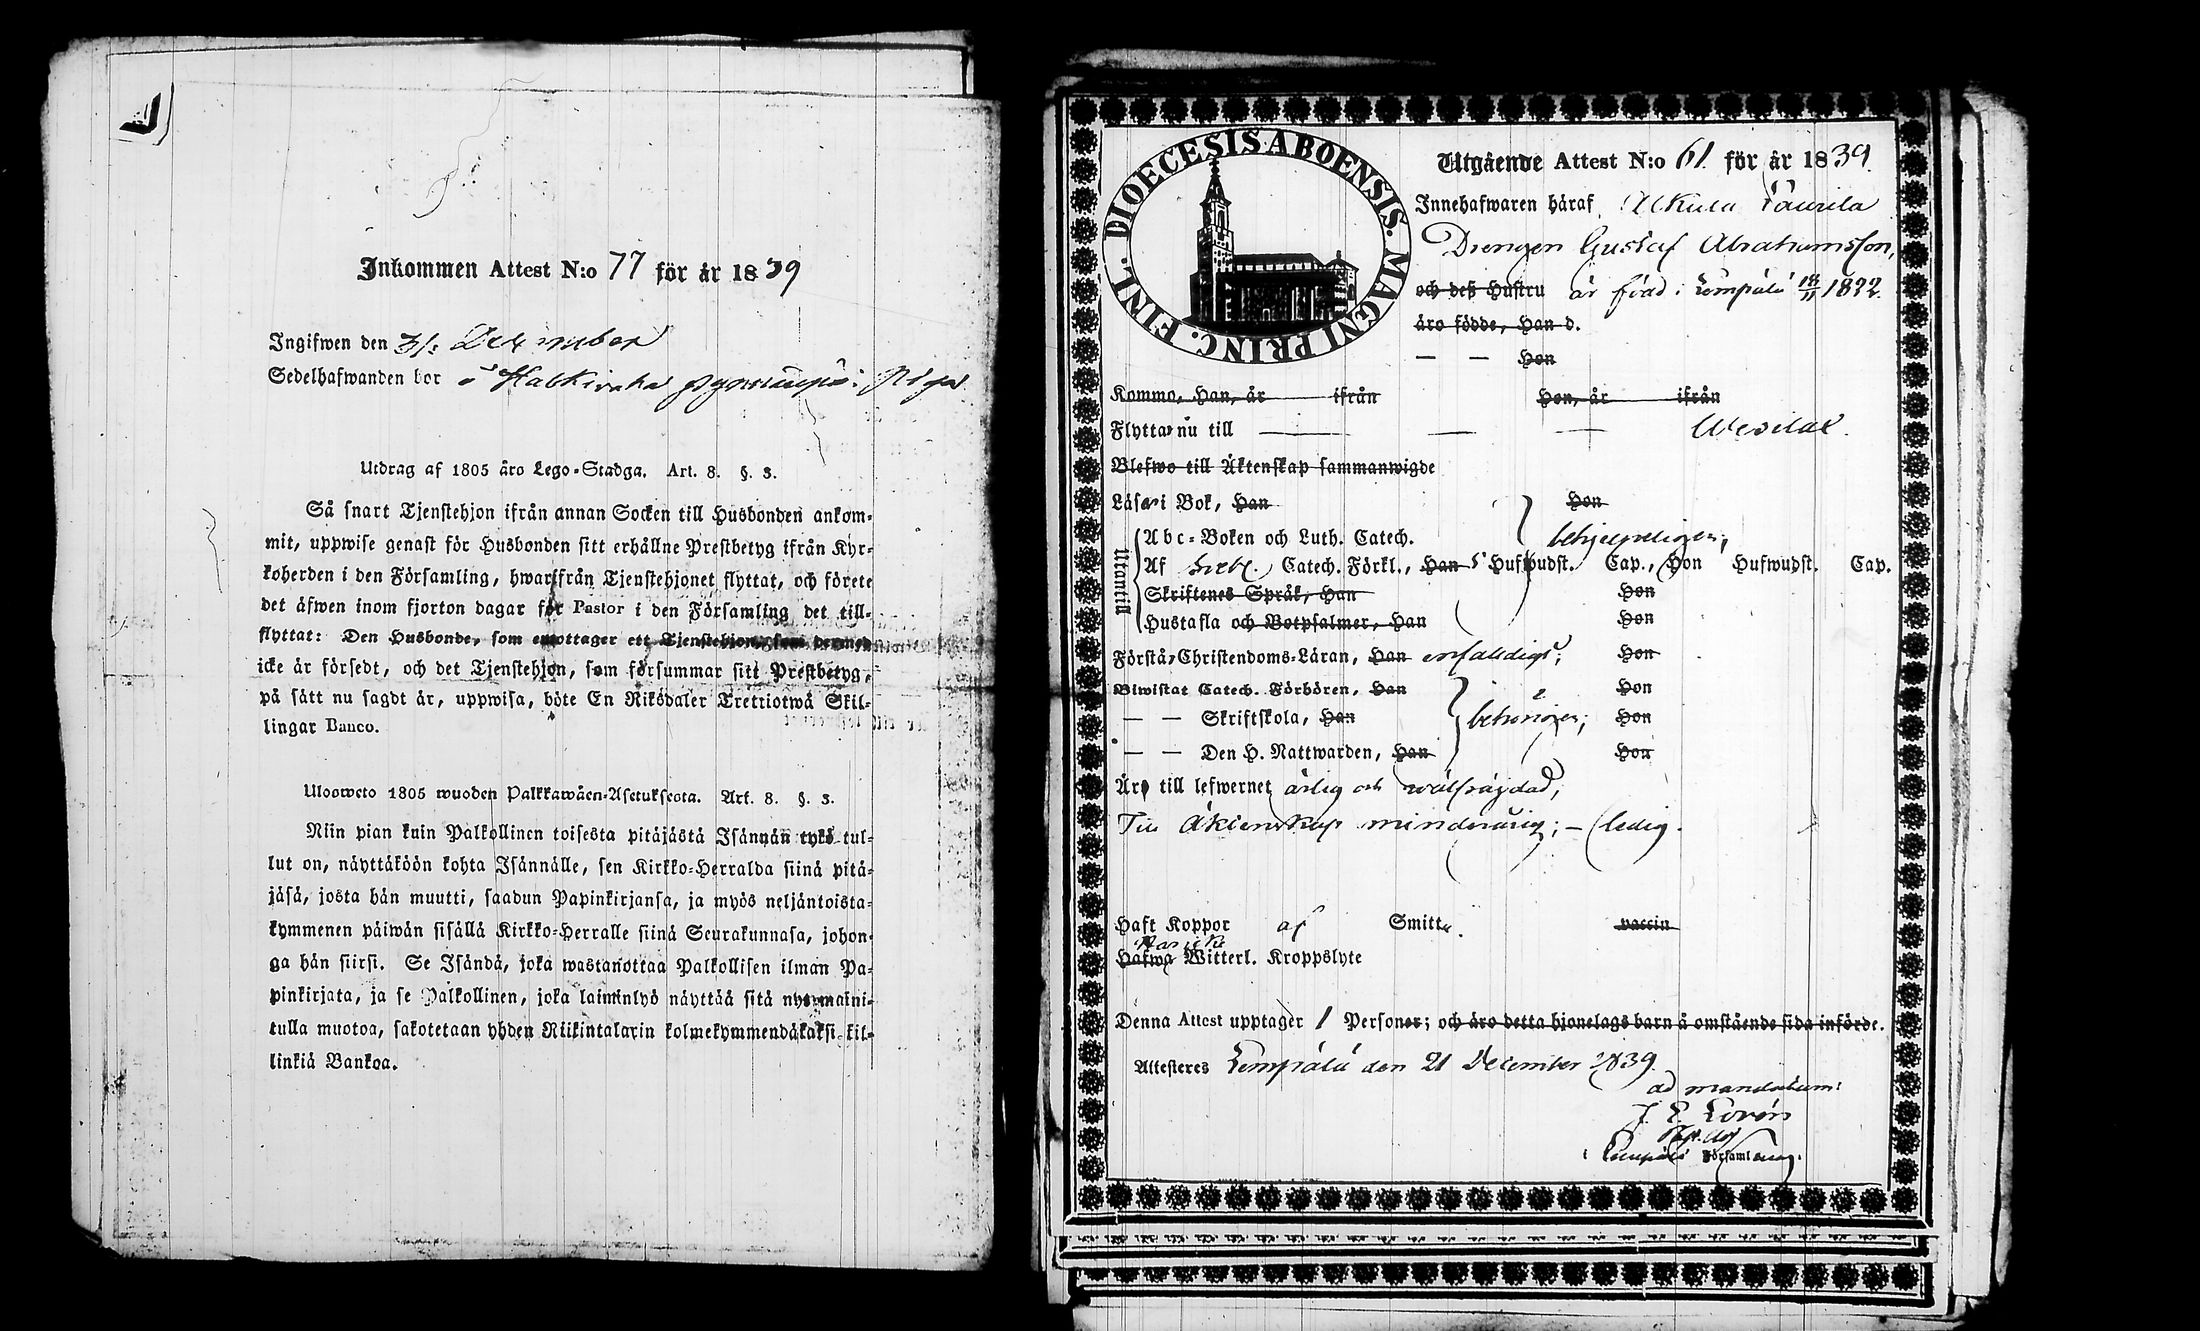 Inkommen Attest N:o 77 för år 1839
Ingifwen den 31 December
Sedelhafwanden bor å
Utdrag af 1805 åro Lego-Stadga. Art. 8. §. 3.
Så snart Tjenstehjon ifrån annan Socken till Husbonden ankom-
mit, uppwise genast för Husbonden sitt erhållne Prestbetyg ifrån Kyr-
koherden i den Församling, hwarifrån Tjenstehjonet flyttat, och förete
det äfwen inom fjorton dagar för Pastor i den Församling det till-
flyttat: Den Husbonde, som emottager ett Tjenstehjon, som dermed
icke är försedt, och det Tjenstehjon, som försummar sitt Prestbetyg,
på sätt nu sagdt är, uppwisa, böte En Riksdaler Tretriotwå Skil-
lingar Banco.
Uloswето 1805 wuoden Palkkawäen-Asetuksesta. Art. 8. §. 3.
Niin pian kuin Palkollinen toisesta pitäjästä Isännän tykö tul-
lut on, näyttäköön kohta Isännälle, sen Kirkko-Herralda siinä pitä-
jäsä, josta hän muutti, saadun Papinkirjansa, ja myös neljäntoista-
kymmenen päiwän sisällä Kirkko-Herralle siinä Seurakunnasa, johon-
ga hän siirsi. Se Isändä, joka wastanottaa Palkollisen ilman Pa-
pinkirjata, ja se Palkollinen, joka laiminlyö näyttää sitä nyt maini-
tulla muotoa, sakotetaan yhden Riikintalarin kolmekymmendäkaksi kil-
linkiä Bankoa.
DIOECESIS ABOENSIS. MAGNI PRINC. FINL.
Utgående Attest N:o 61 för år 1839.
Innehafwaren häraf, Alkula Laurila
Drengen Gustaf Abrahamsson,
och deß Hustru är född i Lempälä 18/11 1822.
äro födde, Han d.
— — Hon
Kommo, Han, år ifrån Hon, år ifrån
Flytta nu till — — — Wesilax.
Blefwo till Äktenskap sammanwigde
Läser i Bok, Han Hon
Utantill
Abc-Boken och Luth. Catech.
Af Sveb. Catech. Förkl., Han 5 Hufwudst. Cap., Hon Hufwudst. Cap.
Skriftenes Språk, Han Hon
Hustafla och Botpsalmer, Han Hon
Förstå Christendoms-Läran, Han enfaldigt; Hon
Biwistat Catech. Förhören, Han Hon
— — Skriftskola, Han behörigen; Hon
— — Den H. Nattwarden, Han Hon
Äro till lefwernet ärlig och wälfrägdad;
Till Äktenskap minderårig; — ledig.
Haft Koppor af Smitta. vaccin
Hafwa Witterl. Kroppslyte
Denna Attest upptager 1 Personer; och äro detta hjonelags barn å omstående sida införde.
Attesteres Lempälä den 21 December 1839.
ad mandatum:
J. E. Lorén
i Lempälä Församling.